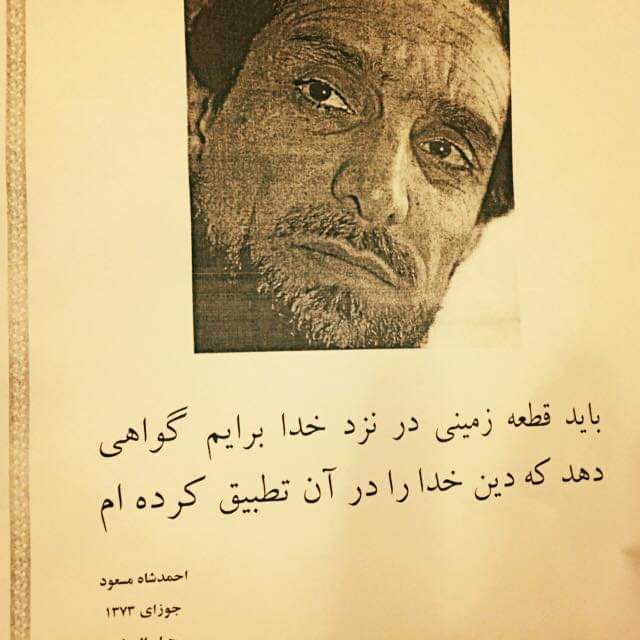 باید قطعه زمینی در نزد خدا برایم گواهی
دهد که دین خدا را در آن تطبیق کرده ام
احمدشاه مسعود
جوزای ۱۳۷۳